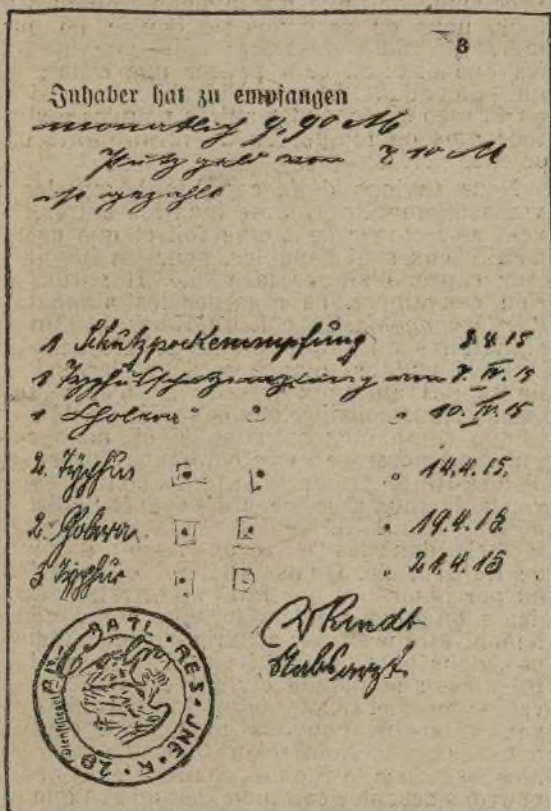 3
Inhaber hat zu empfangen
monatlich 9,90 M
Putzgeld von 7 10 M
ist gezahlt
1 Schützpockenimpfung 8.4.15
1 Typhusschutzimpfung am 8. IV. 15
1 Cholera " " " 10. IV. 15
2. Typhus " " " 14.4.15.
2. Cholera " " " 19.4.15
3 Typhus " " " 21.4.15
Stabsarzt
BATL · RES · INF · R · 20 · Dienstsiegel